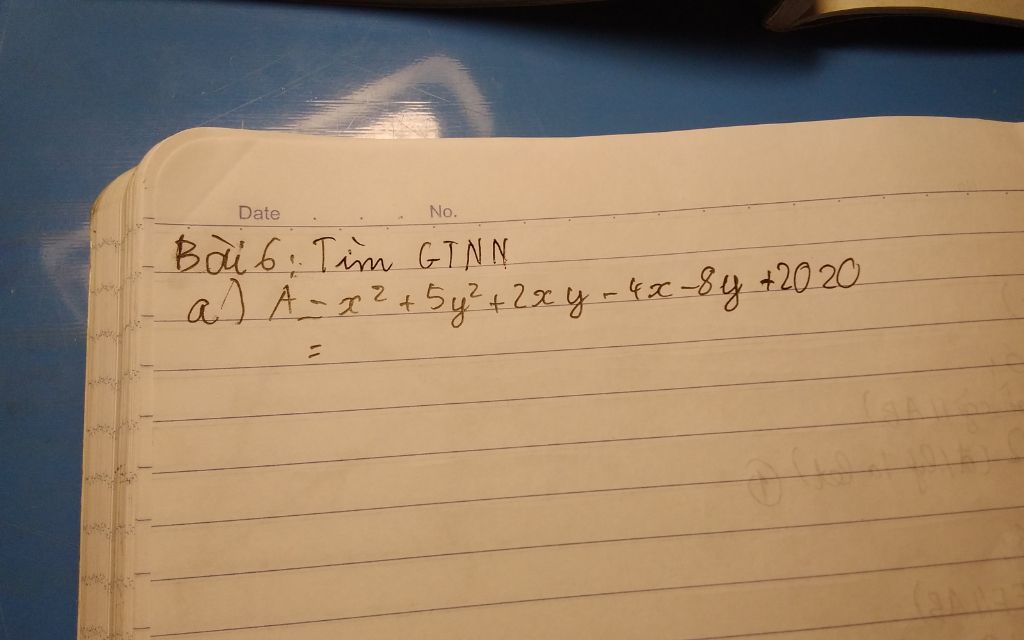 Date No.
Bài 6: Tìm GTNN
a) A = x² + 5y² + 2xy - 4x - 8y + 2020
=